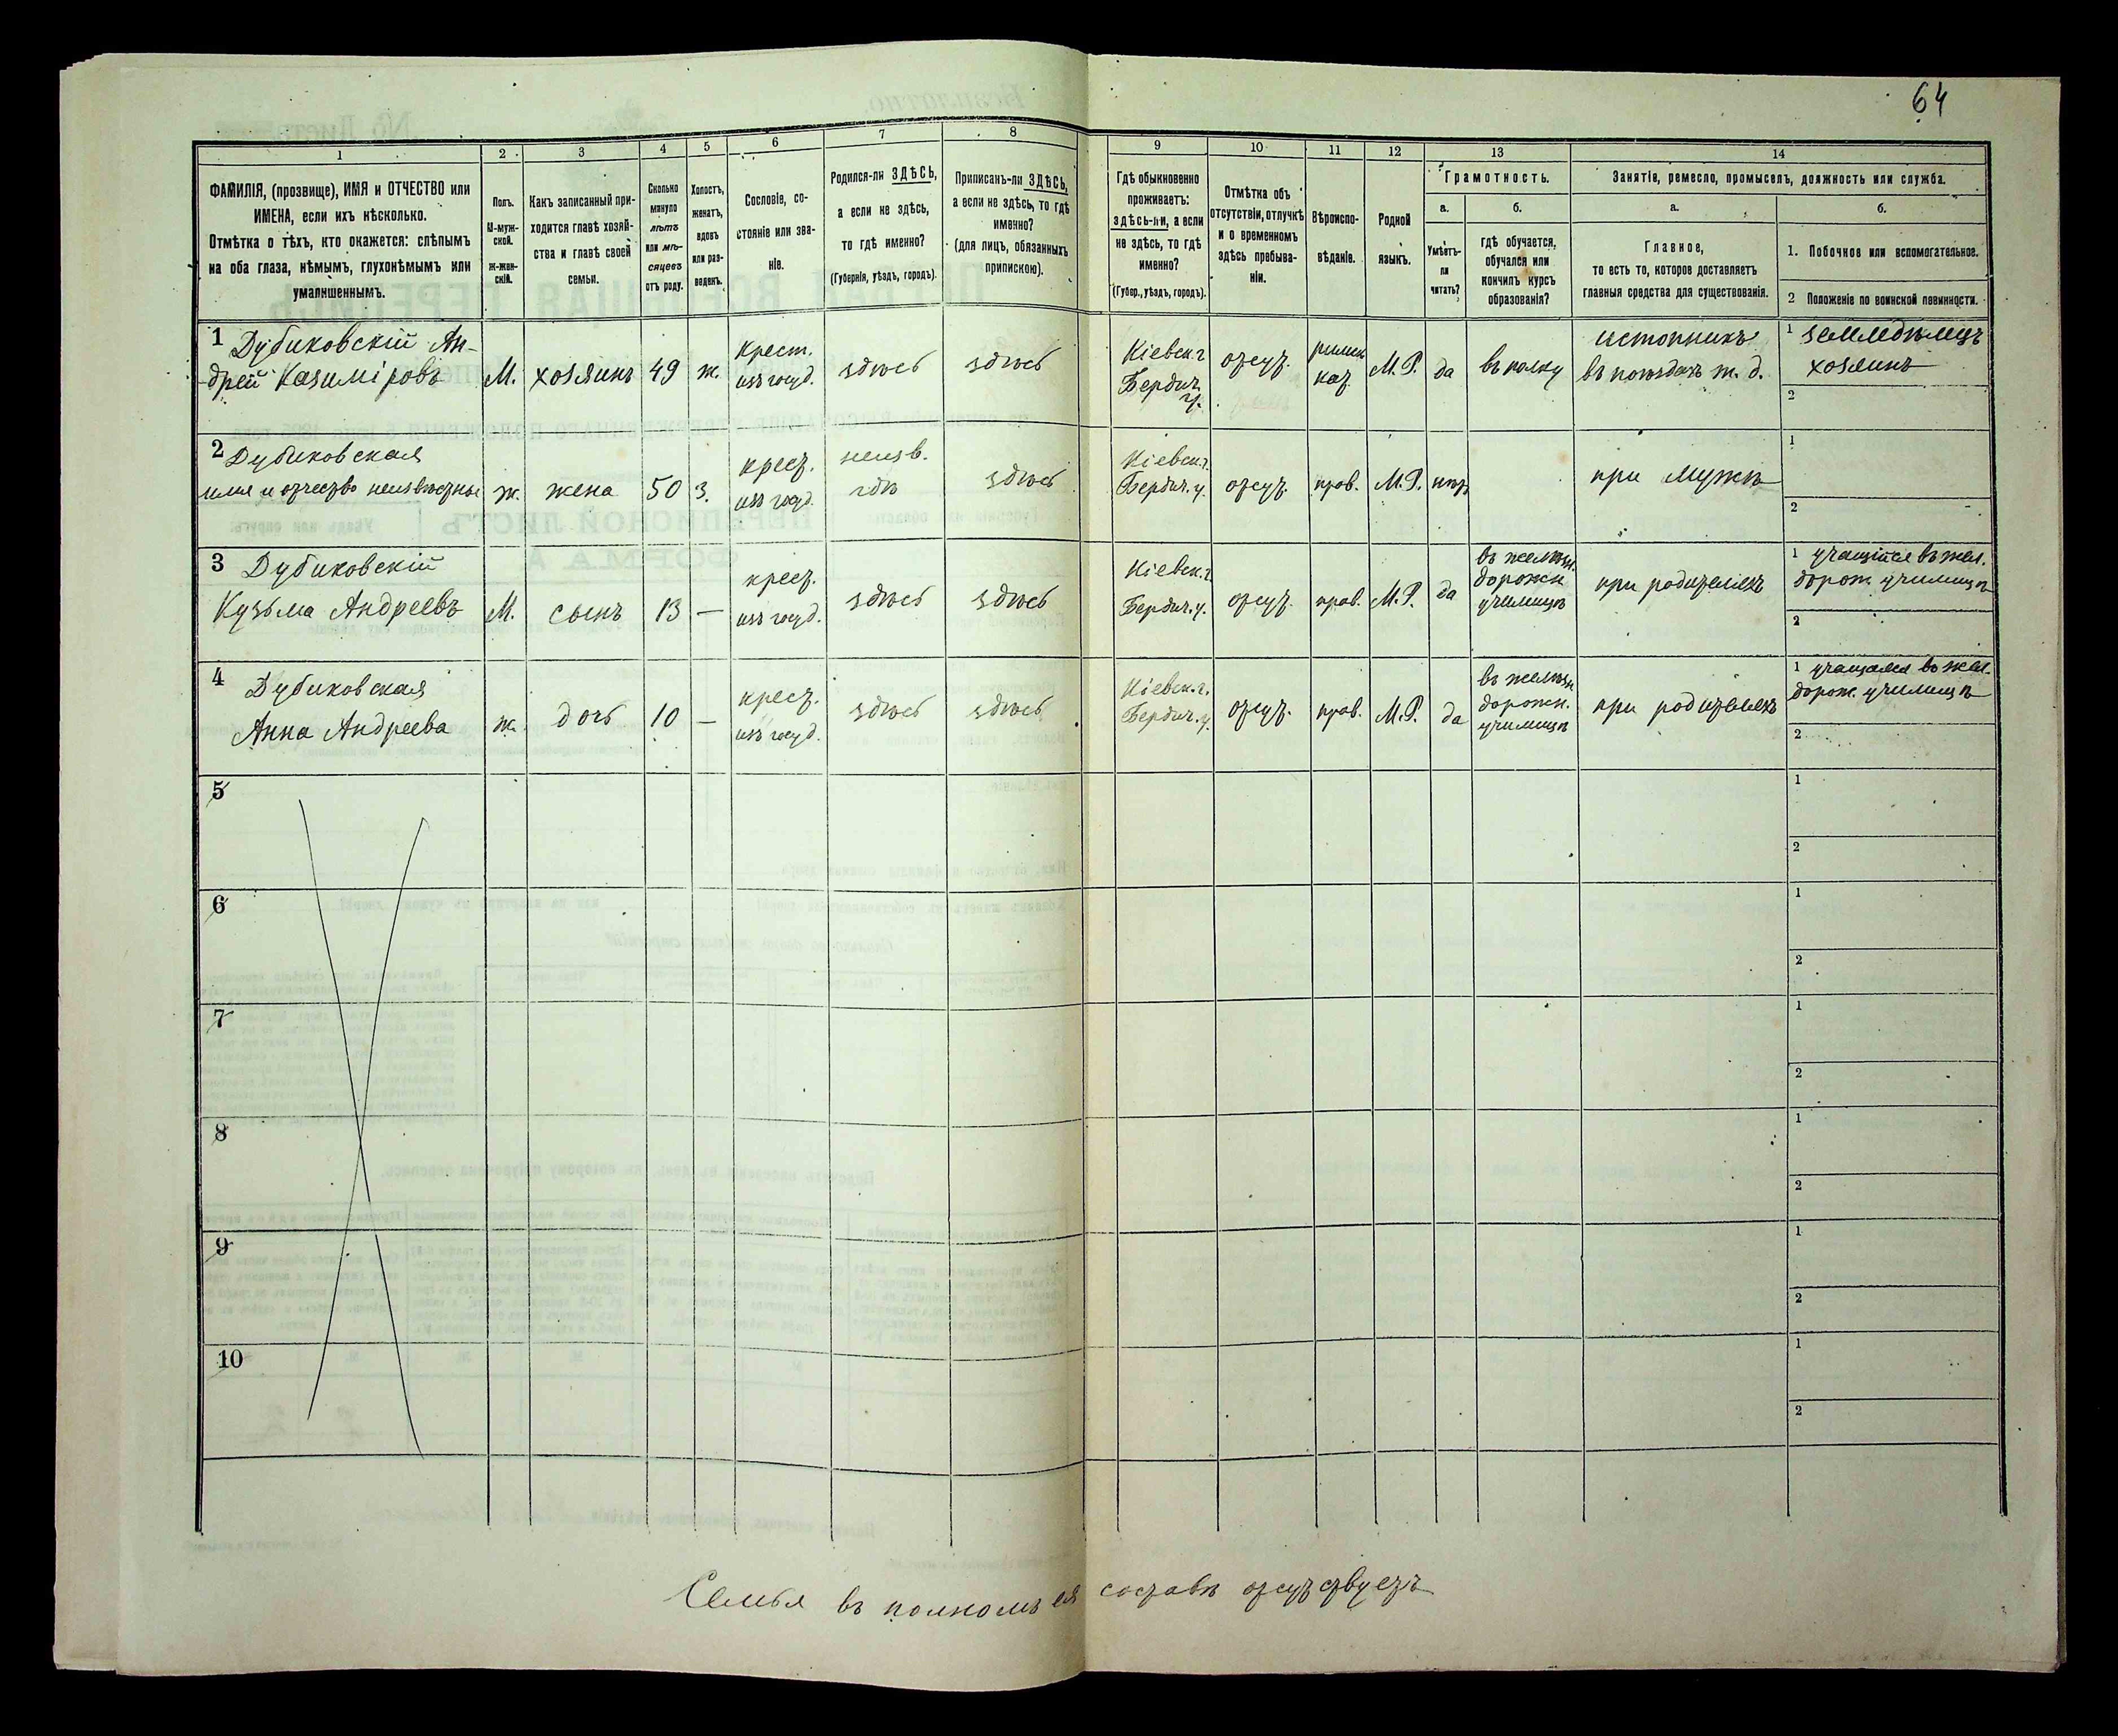 64
1 2 3 4 5 6 7 8 9 10 11 12 13 14
ФАМИЛІЯ, (прозвище), ИМЯ и ОТЧЕСТВО или
ИМЕНА, если ихъ нѣсколько.
Отмѣтка о тѣхъ, кто окажется: слѣпымъ
на оба глаза, нѣмымъ, глухонѣмымъ или
умалишеннымъ.
Полъ.
М-муж-
ской.
ж-жен-
скій.
Какъ записанный при-
ходится главѣ хозяй-
ства и главѣ своей
семьи.
Сколько
минуло
лѣтъ
или мѣ-
сяцевъ
отъ роду.
Холостъ,
женатъ,
вдовъ
или раз-
веденъ.
Сословіе, со-
стояніе или зва-
ніе.
Родился-ли ЗДѢСЬ,
а если не здѣсь,
то гдѣ именно?
(Губернія, уѣздъ, городъ).
Приписанъ-ли ЗДѢСЬ,
а если не здѣсь, то гдѣ
именно?
(для лицъ, обязанныхъ
припискою).
Гдѣ обыкновенно
проживаетъ:
здѣсь-ли, а если
не здѣсь, то гдѣ
именно?
(Губер., уѣздъ, городъ).
Отмѣтка объ
отсутствіи, отлучкѣ
и о временномъ
здѣсь пребыва-
ніи.
Вѣроиспо-
вѣданіе.
Родной
языкъ.
Грамотность.
а. б.
Умѣетъ-
ли
читать?
гдѣ обучается,
обучался или
кончилъ курсъ
образованія?
Занятіе, ремесло, промыселъ, должность или служба.
а. б.
Главное,
то есть то, которое доставляетъ
главныя средства для существованія.
1. Побочное или вспомогательное.
2 Положеніе по воинской повинности.
1 Дубиковскій Ан-
дрей Казиміровъ
М.
хозяинъ
49
ж.
Крест.
изъ госуд.
здѣсь
здѣсь
Кіевск. г
Бердич.
у.
отсут.
римск
кат
М. Р.
да
въ полку
истопникъ
въ поѣздахъ ж. д.
1 земледѣлецъ
хозяинъ
2
2 Дубиковская
имя и отчество неизвѣстны
ж.
жена
50
з.
крест.
изъ госуд.
неизв.
гдѣ
здѣсь
Кіевск. г.
Бердич. у.
отсут.
прав.
М. Р.
нѣтъ
при мужѣ
1
2
3 Дубиковскій
Кузьма Андреевъ
М.
сынъ
13
—
крест.
изъ госуд.
здѣсь
здѣсь
Кіевск. г.
Бердич. у.
отсут.
прав.
М. Р.
да
въ желѣзн.
дорожн.
училищѣ
при родителяхъ
1 учащійся въ жел.
дорож. училищѣ
2
4 Дубиковская
Анна Андреева
ж.
дочь
10
—
крест.
изъ госуд.
здѣсь
здѣсь
Кіевск. г.
Бердич. у.
отсут.
прав.
М. Р.
да
въ желѣзн
дорожн.
училищѣ
при родителяхъ
1 учащаяся въ жел.
дорож. училищѣ
2
5
1
2
6
1
2
7
1
2
8
1
2
9
1
2
10
1
2
Семья въ полномъ ея составѣ отсутствуетъ